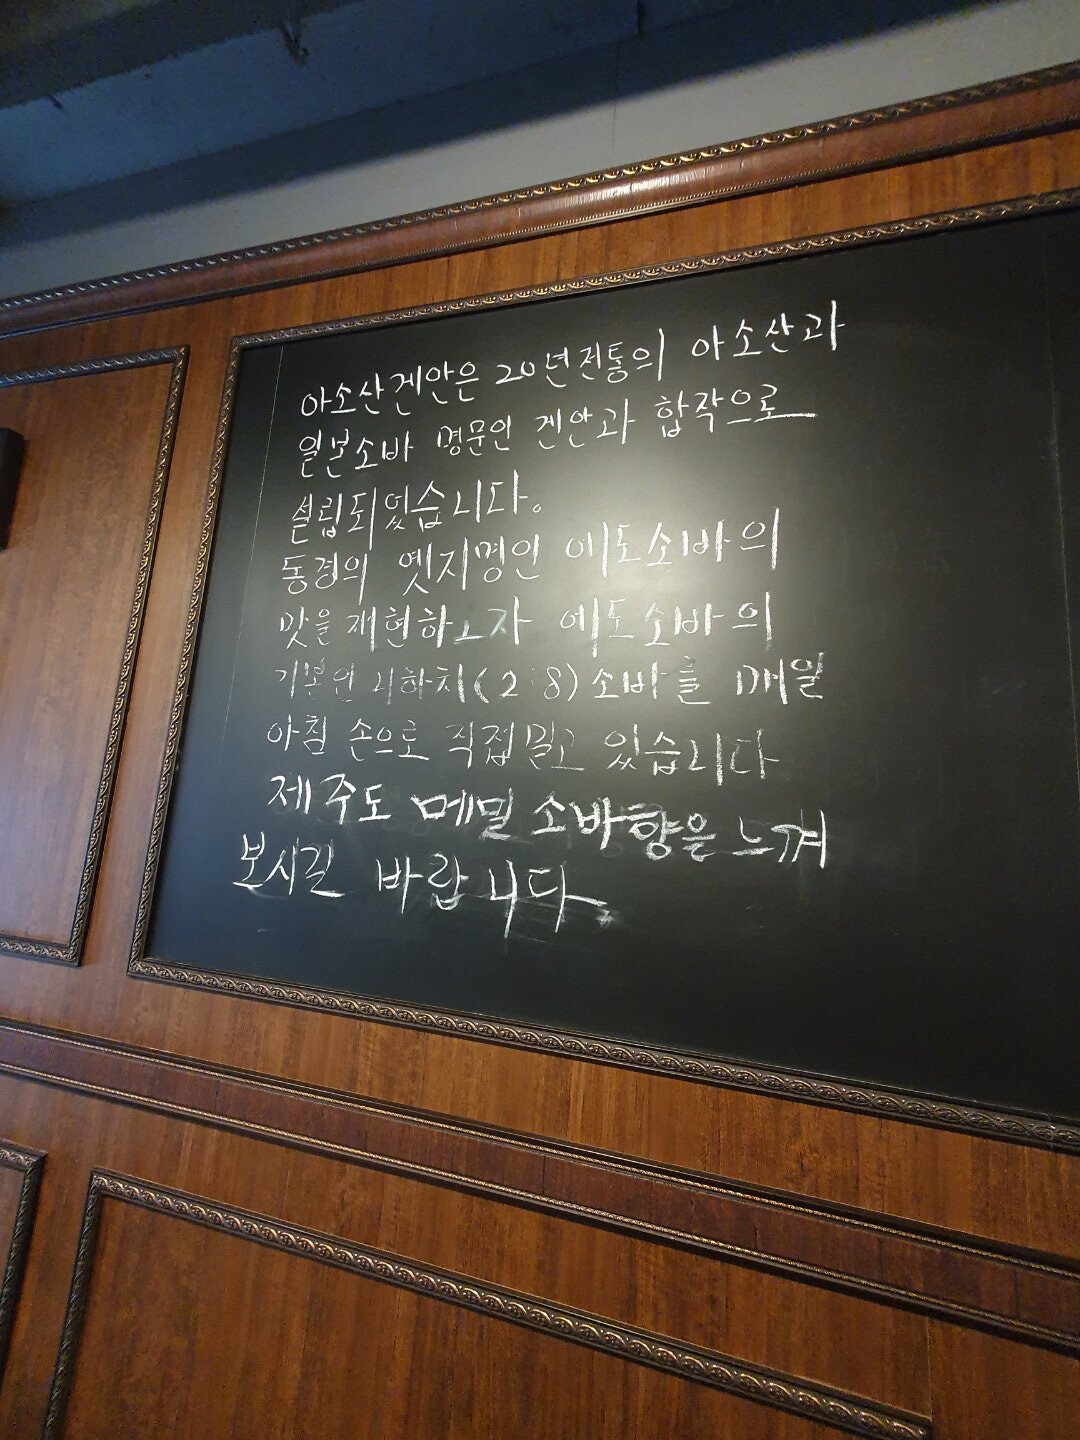 아소산겐안은 20년전통의 아소산과
일본소바 명문인 겐안과 합작으로
설립되었습니다.
동경의 옛지명인 에도소바의
맛을 재현하고자 에도소바의
기본인 니하치(2:8)소바를 매일
아침 손으로 직접밀고 있습니다
제주도 메밀 소바향을 느껴
보시길 바랍니다.